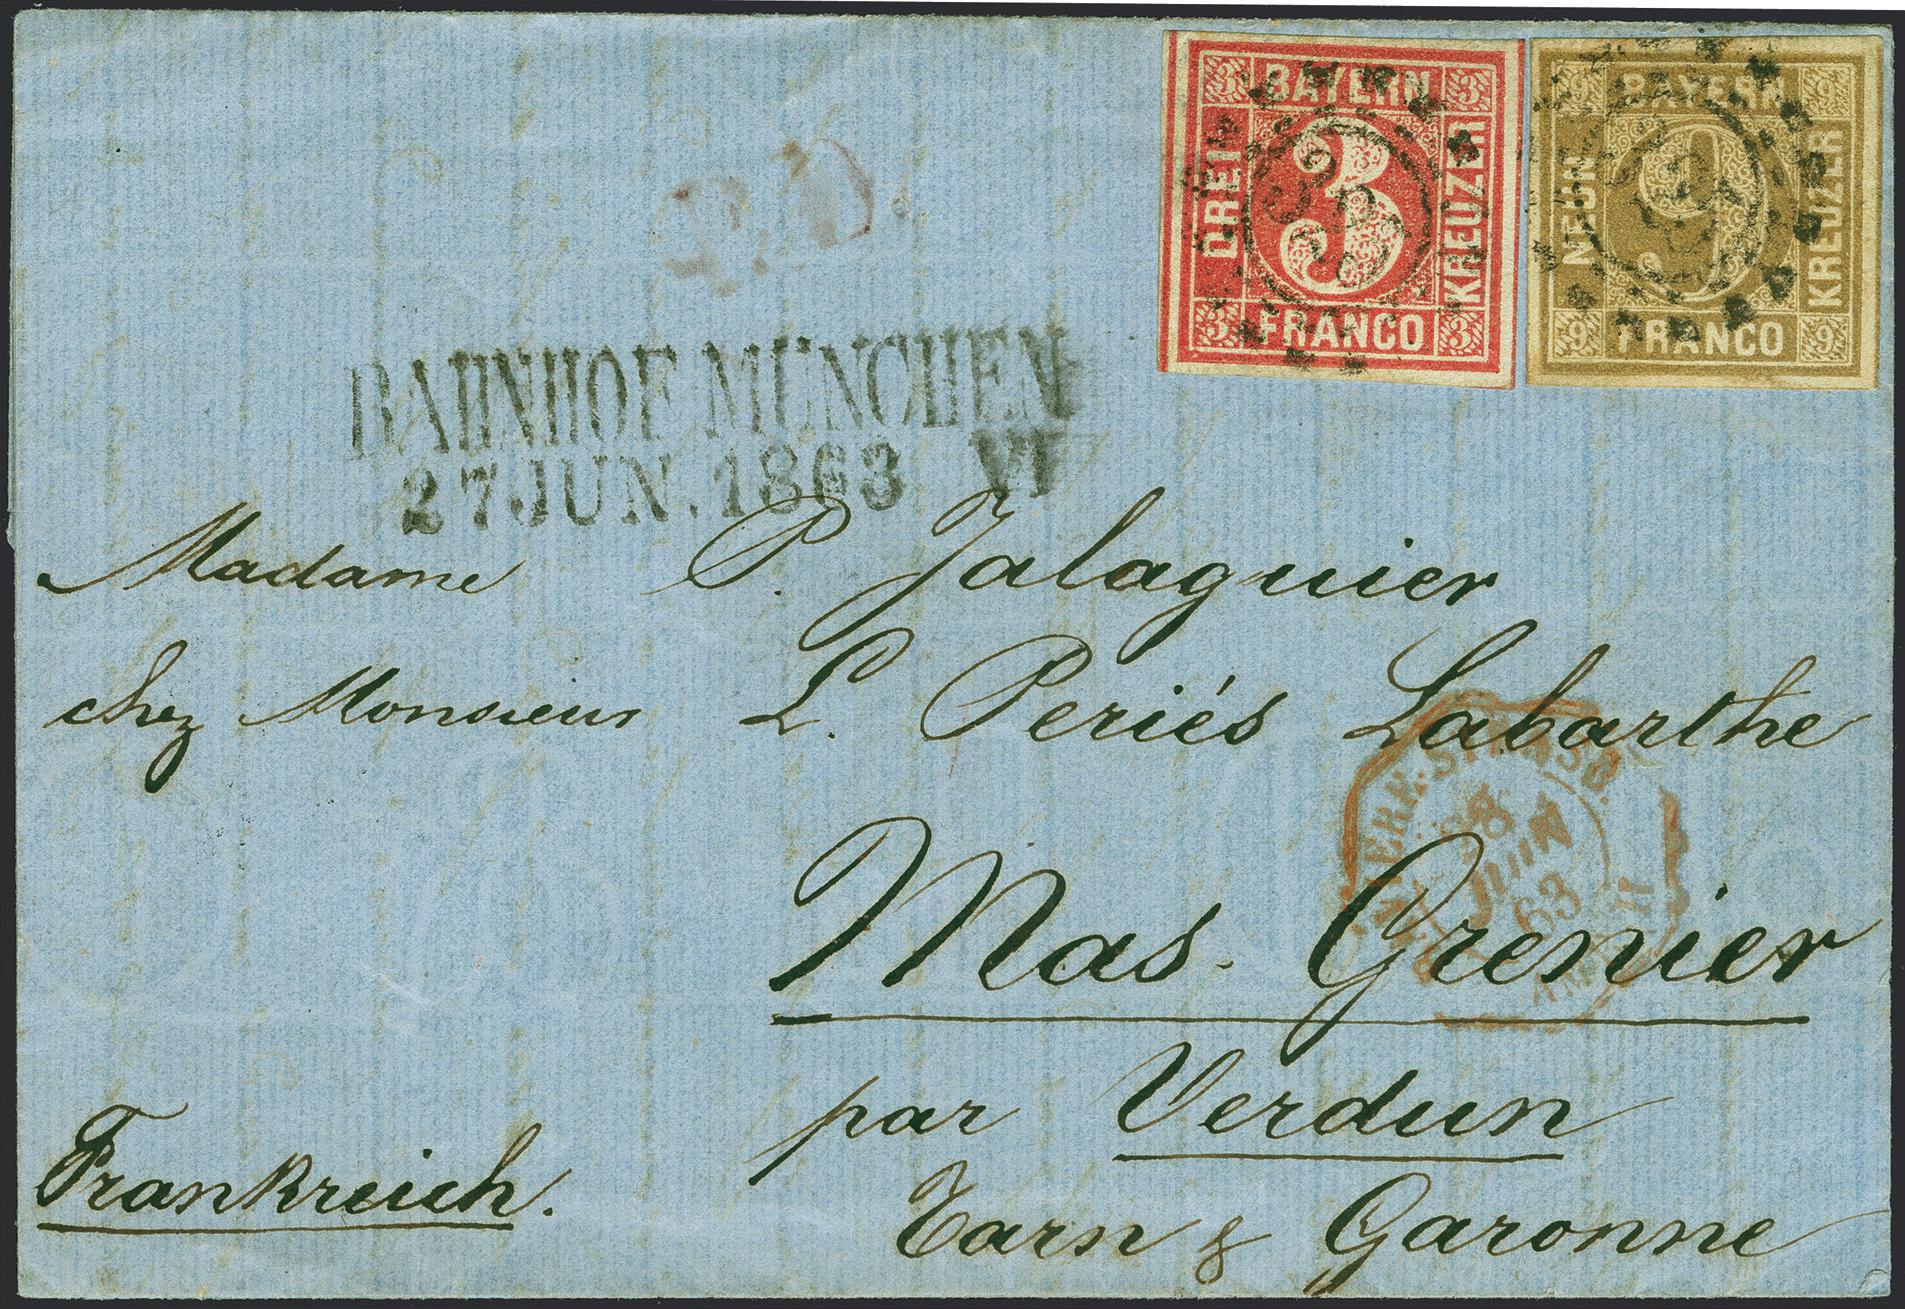 3 BAYERN 3
DREI 3 KREUZER
3 FRANCO 3
9 BAYERN 9
NEUN 9 KREUZER
9 FRANCO 9
P.D.
BAHNHOF MÜNCHEN
27 JUN. 1863 VI
Madame P. Jalaguier
chez Monsieur L. Periés Labarthe
STRASB.
28
JUIN
63
Mas. Grenier
par Verdun
Frankreich.
Tarn & Garonne